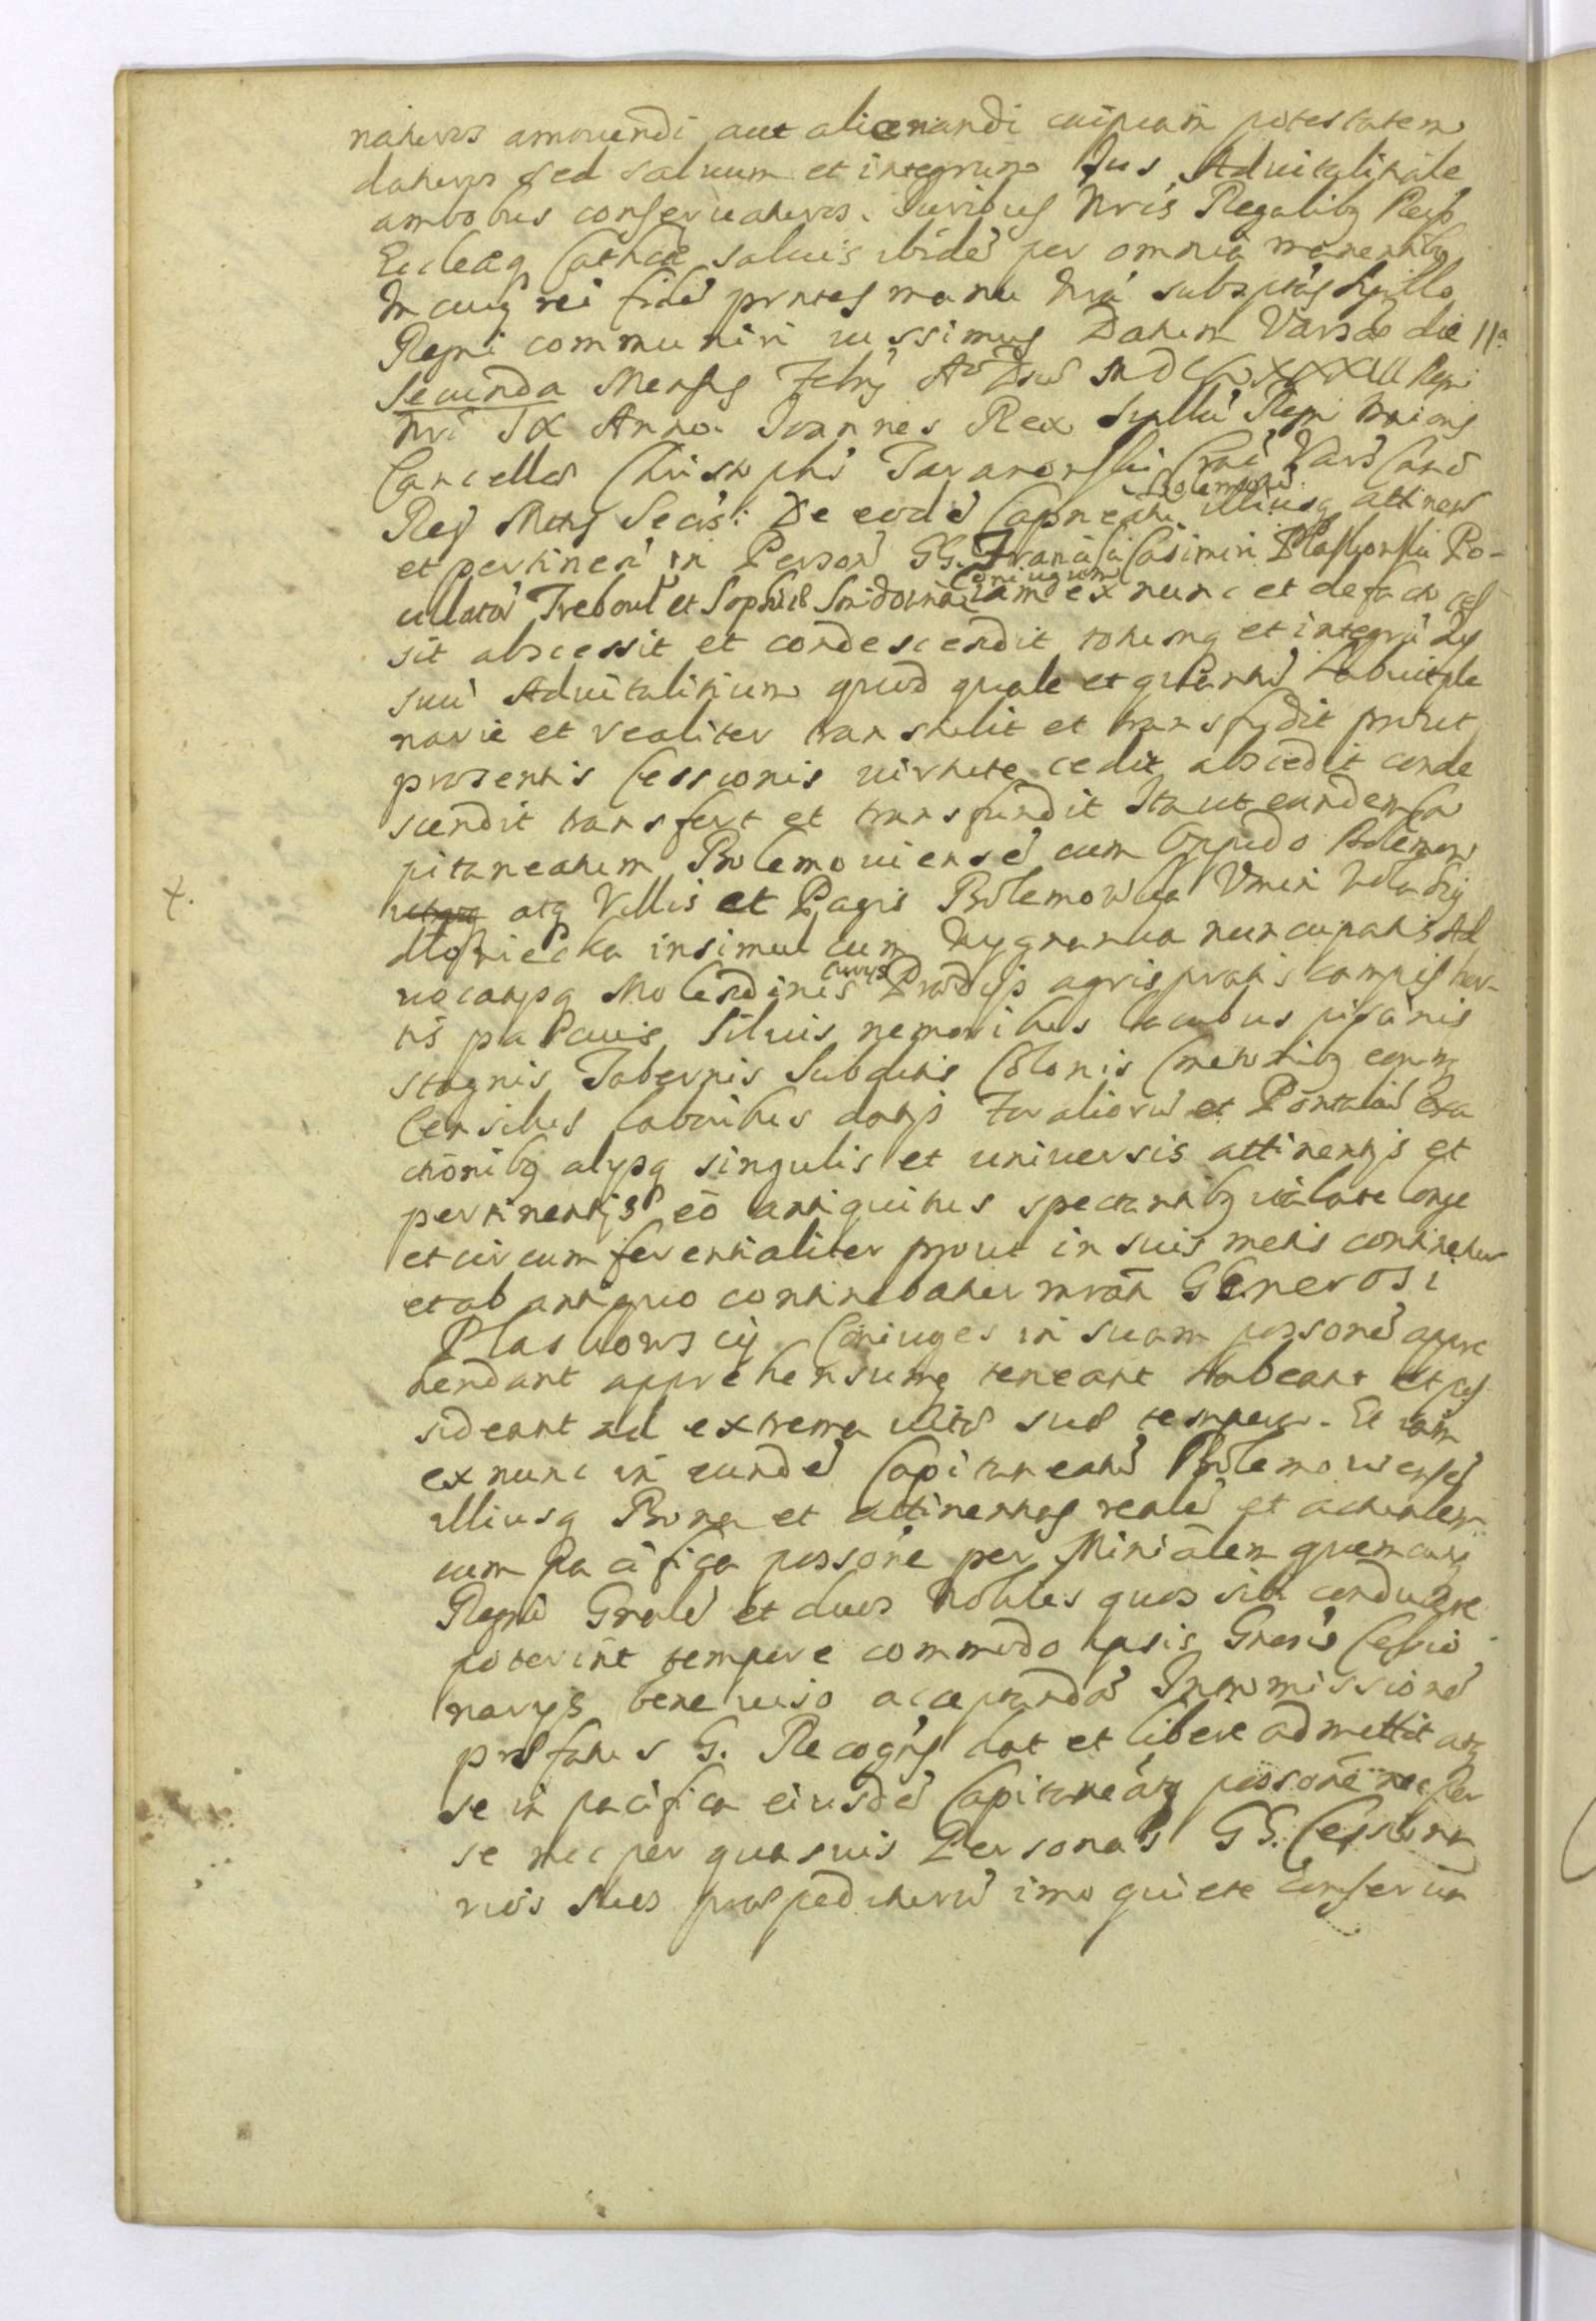 naturos amouendi aut alienandi cuipiam potestatem
daturos sed saluum et integrum Jus Aduitalitate
ambobus conseruaturos. Juribus Nris Regalibq Reip
Eccleaq Cathcae saluis ibidē per omnia manentibq
In cuiq rei fidē pruntes manu Nrā subsptas Sigillo
Regni communiri iussimus Datum Varsae die 11a
Secunda Mensis Febrij Ao Dni MDCLXXXII Regni
Nri IX Anno. Joannes Rex Sigillū Regni Maioris
Cancellar Christophi Taranowski Vars Cano
Reg Mttis Secris: De eodē Capneatu Bolemouien illiusq attinen
et pertinen in Person GG. Francisci Casimiri Plaskowski Po-
cillator Trebowl et Sophiae Coniugum iam ex nunc et de facto ces
sit abscessit et condescendit totumq et integrū Jus
suū Aduitalitium quod quale et quantū habuit ple
narie et realiter transtulit et transfudit prout
praesentis Cessionis uirtute cedit abscedit conde
scendit transfert et transfundit Ita ut eundem Ca
pitaneatum Bolemouiensē cum Oppido Bolemow
atq Villis et Pagis Bolemowska Wola
insimul cum nuncupatis Ad
uocatijsq Molendinis Curijs Praedijs agris pratis campis hor-
tis pascuis Siluis nemoribus lacubus piscinis
stagnis Tabernis Subditis Colonis Cmetonibq eorumq
Censibus laboribus datijs Foraliorū et Pontaliū Exa
ctōnibq alijsq singulis et uniuersis attinentijs et
pertinentijs eō antiquitus spectantibq ita late longe
et circumferentialiter prout in suis metis continetur
et ab antiquo continebatur mrati Generosi
Plaskowscij Coniuges in suam possonē appre
hendant apprehensumq teneant habeant et pos
sideant ad extrema uitae suae tempora. Et iam
ex nunc in eundē Capitaneatū Bolemowiensē
illiusq Bona et attinentias realē et actualem
cum pacifica possone per Ministālem quemcunq
Regni Gnralē et duos Nobiles quos sibi conducere
poterint tempore commodo ipsis Gnosis Cessio
narijs bene uiso acceptandā Intromissionē
praefatus G. Recogns dat et libere admittit atq
se in pacifica eiusdē Capitaneatq possone nec per
se nec per quasuis Personas GG. Cessiona
rios suos praepediturū imo quiete conserua